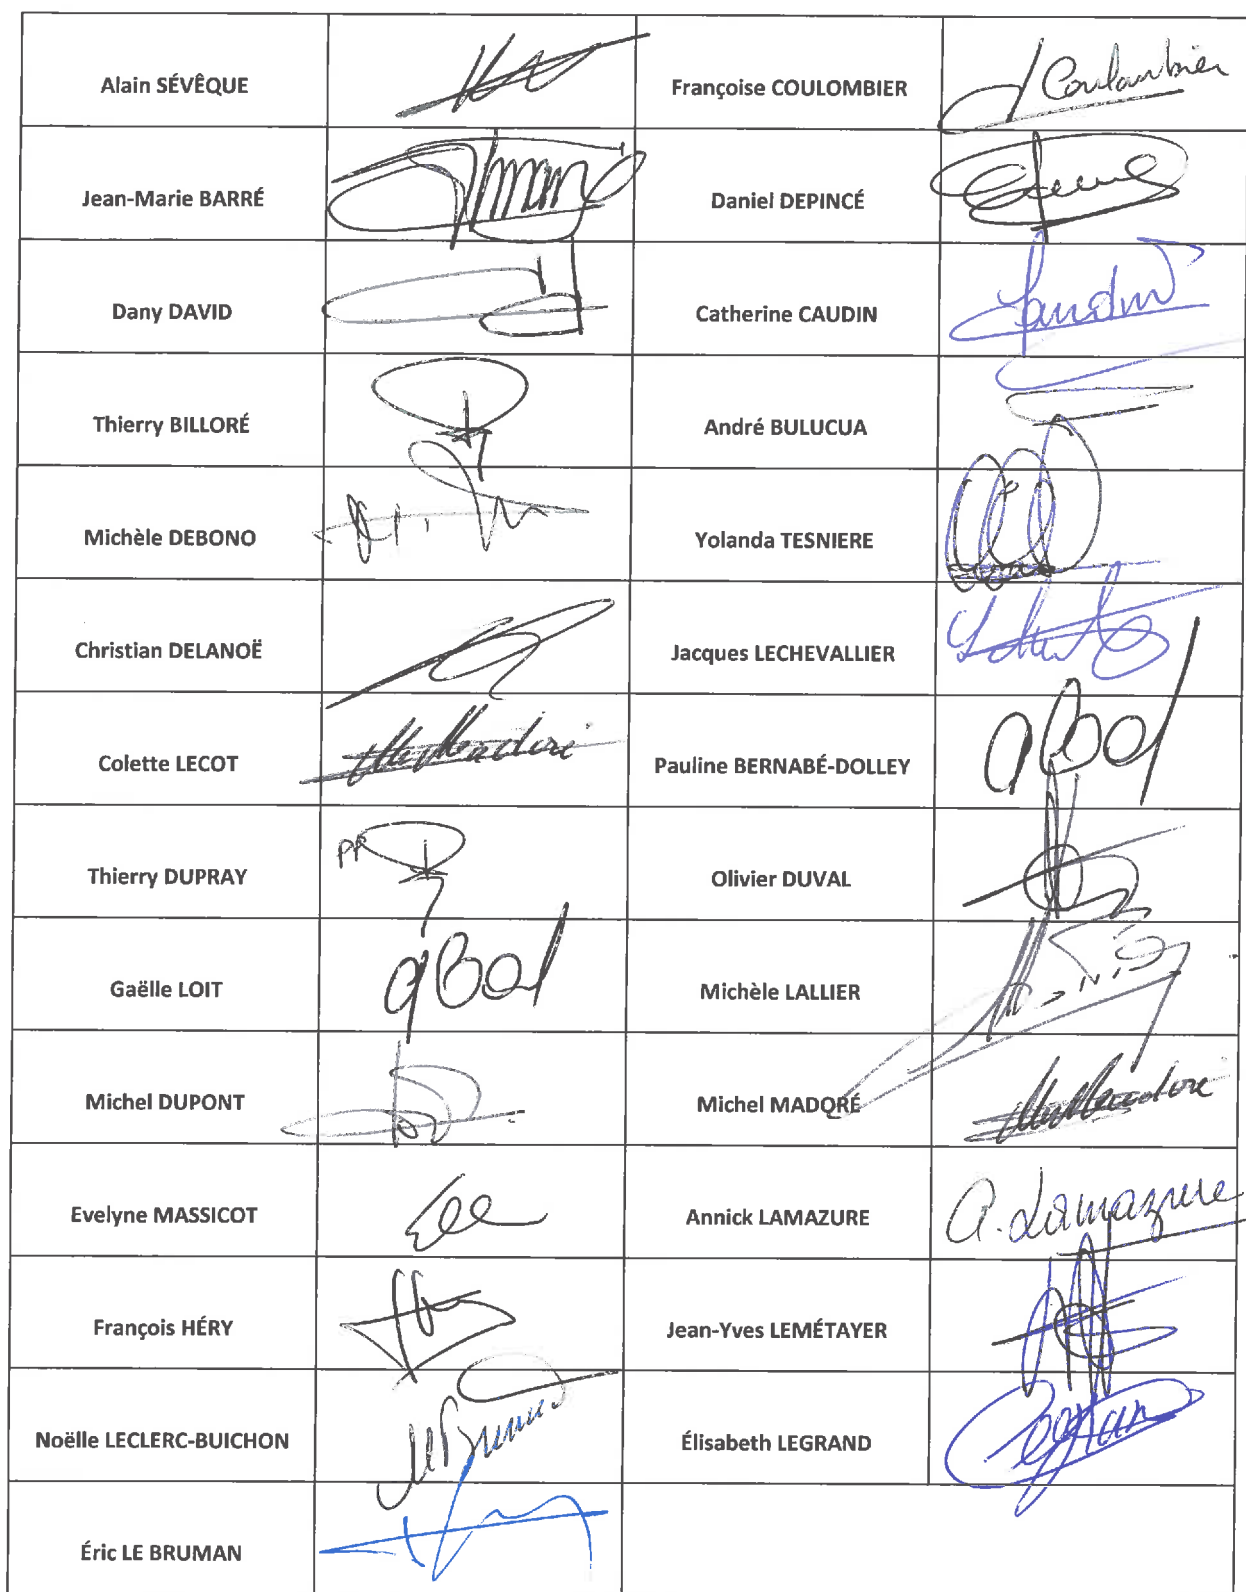 Alain SÉVÊQUE
Françoise COULOMBIER
Coulombier
Jean-Marie BARRÉ
Daniel DEPINCÉ
Dany DAVID
Catherine CAUDIN
Caudin
Thierry BILLORÉ
André BULUCUA
Michèle DEBONO
Yolanda TESNIERE
Christian DELANOË
Jacques LECHEVALLIER
Colette LECOT
Pauline BERNABÉ-DOLLEY
Thierry DUPRAY
PP
Olivier DUVAL
Gaëlle LOIT
Michèle LALLIER
Michel DUPONT
Michel MADORÉ
Evelyne MASSICOT
Annick LAMAZURE
A. Lamazure
François HÉRY
Jean-Yves LEMÉTAYER
Noëlle LECLERC-BUICHON
Élisabeth LEGRAND
Éric LE BRUMAN